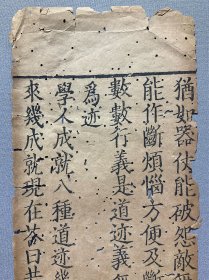 猶如器仗能被怨敵
能作斷煩惱方便及斷
數數行義是道迹義
爲迹
學人成就八種道迹幾
來幾成就現在答曰